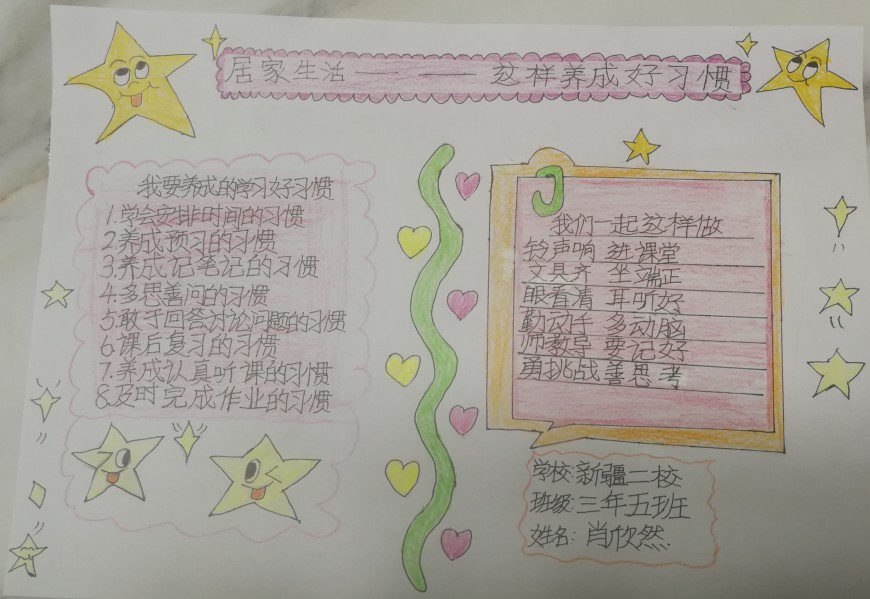 居家生活—— ——这样养成好习惯
我要养成的学习好习惯
1.学会安排时间的习惯
2.养成预习的习惯
3.养成记笔记的习惯
4.多思善问的习惯
5.敢于回答讨论问题的习惯
6.课后复习的习惯
7.养成认真听课的习惯
8.及时完成作业的习惯
我们一起这样做
铃声响 进课堂
文具齐 坐端正
眼看清 耳听好
勤动手 多动脑
师教导 要记好
勇挑战 善思考
学校:新疆二校
班级:三年五班
姓名:肖欣然